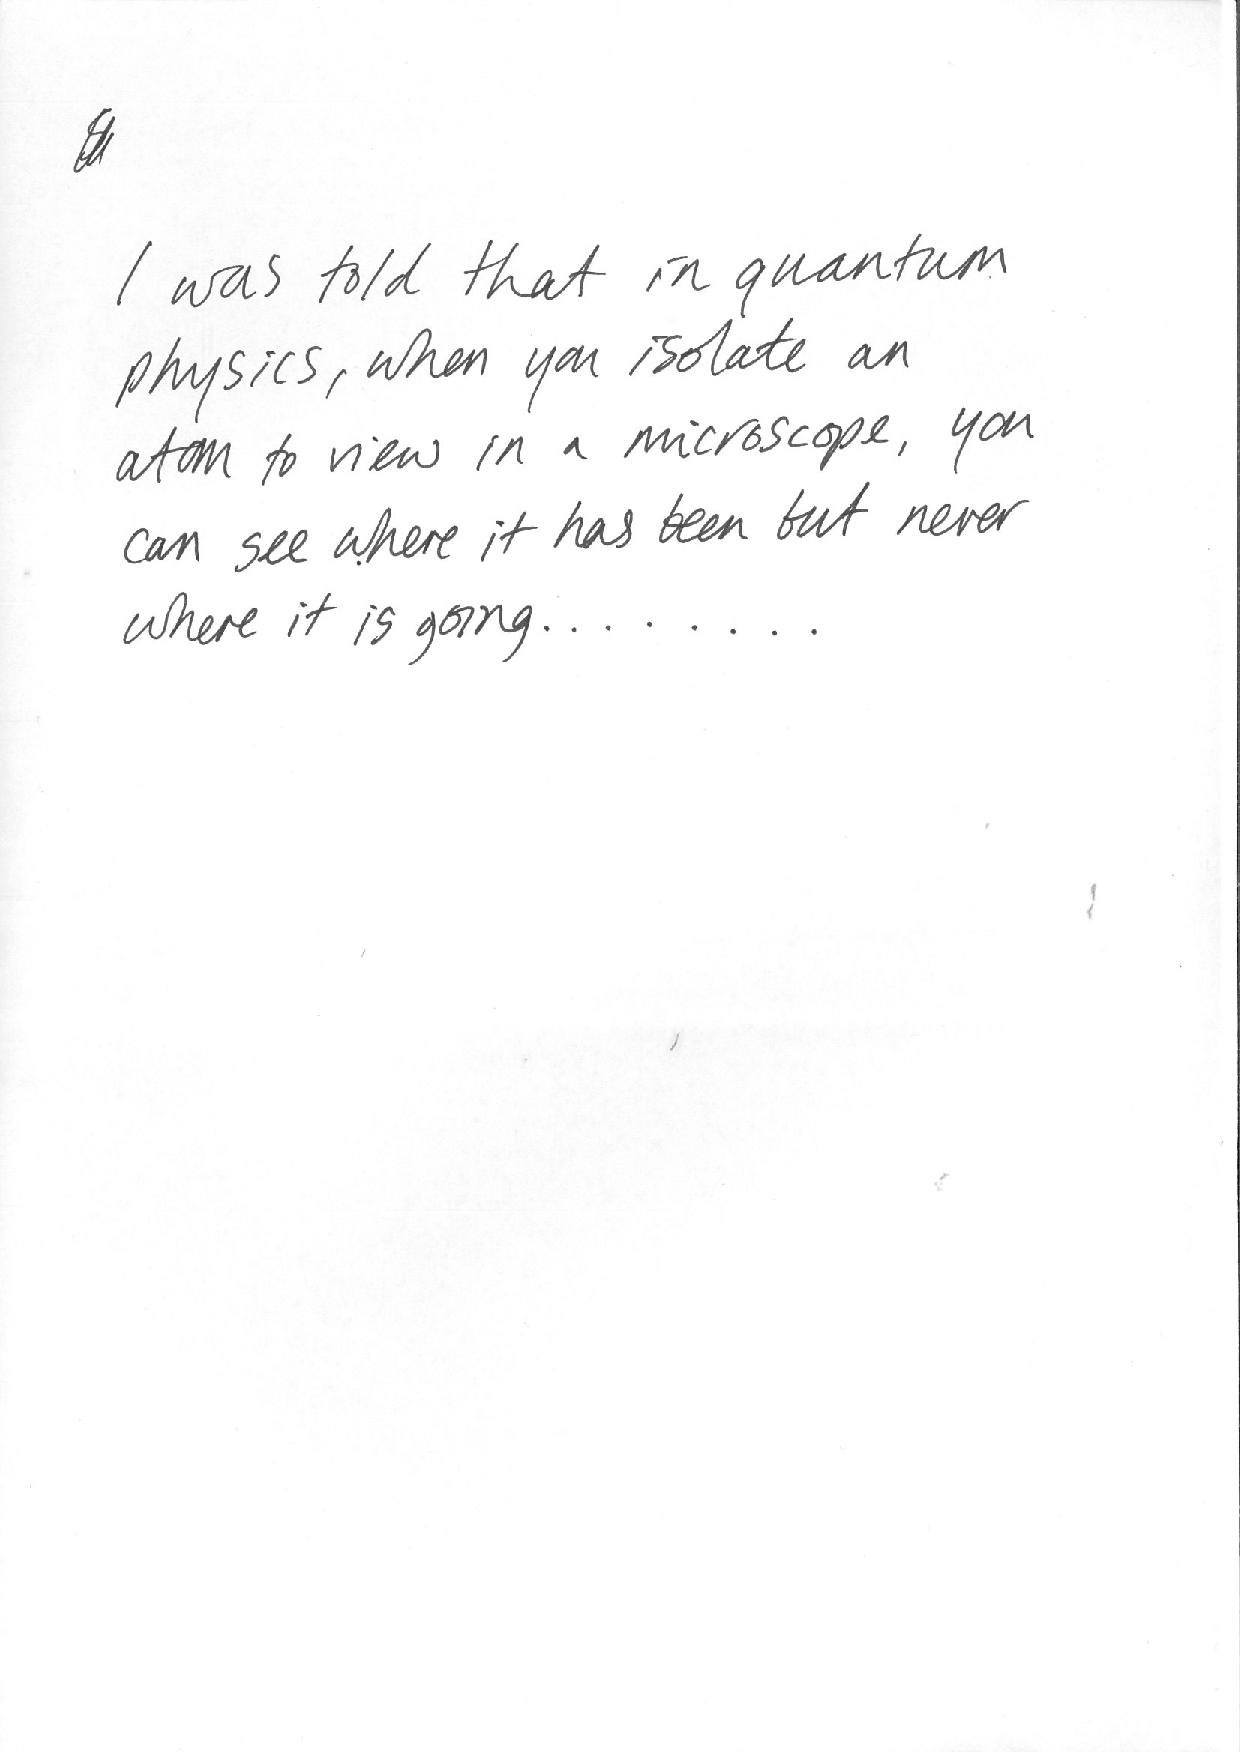 I was told that in quantum
physics, when you isolate an
atom to view in a microscope, you
can see where it has been but never
where it is going.........